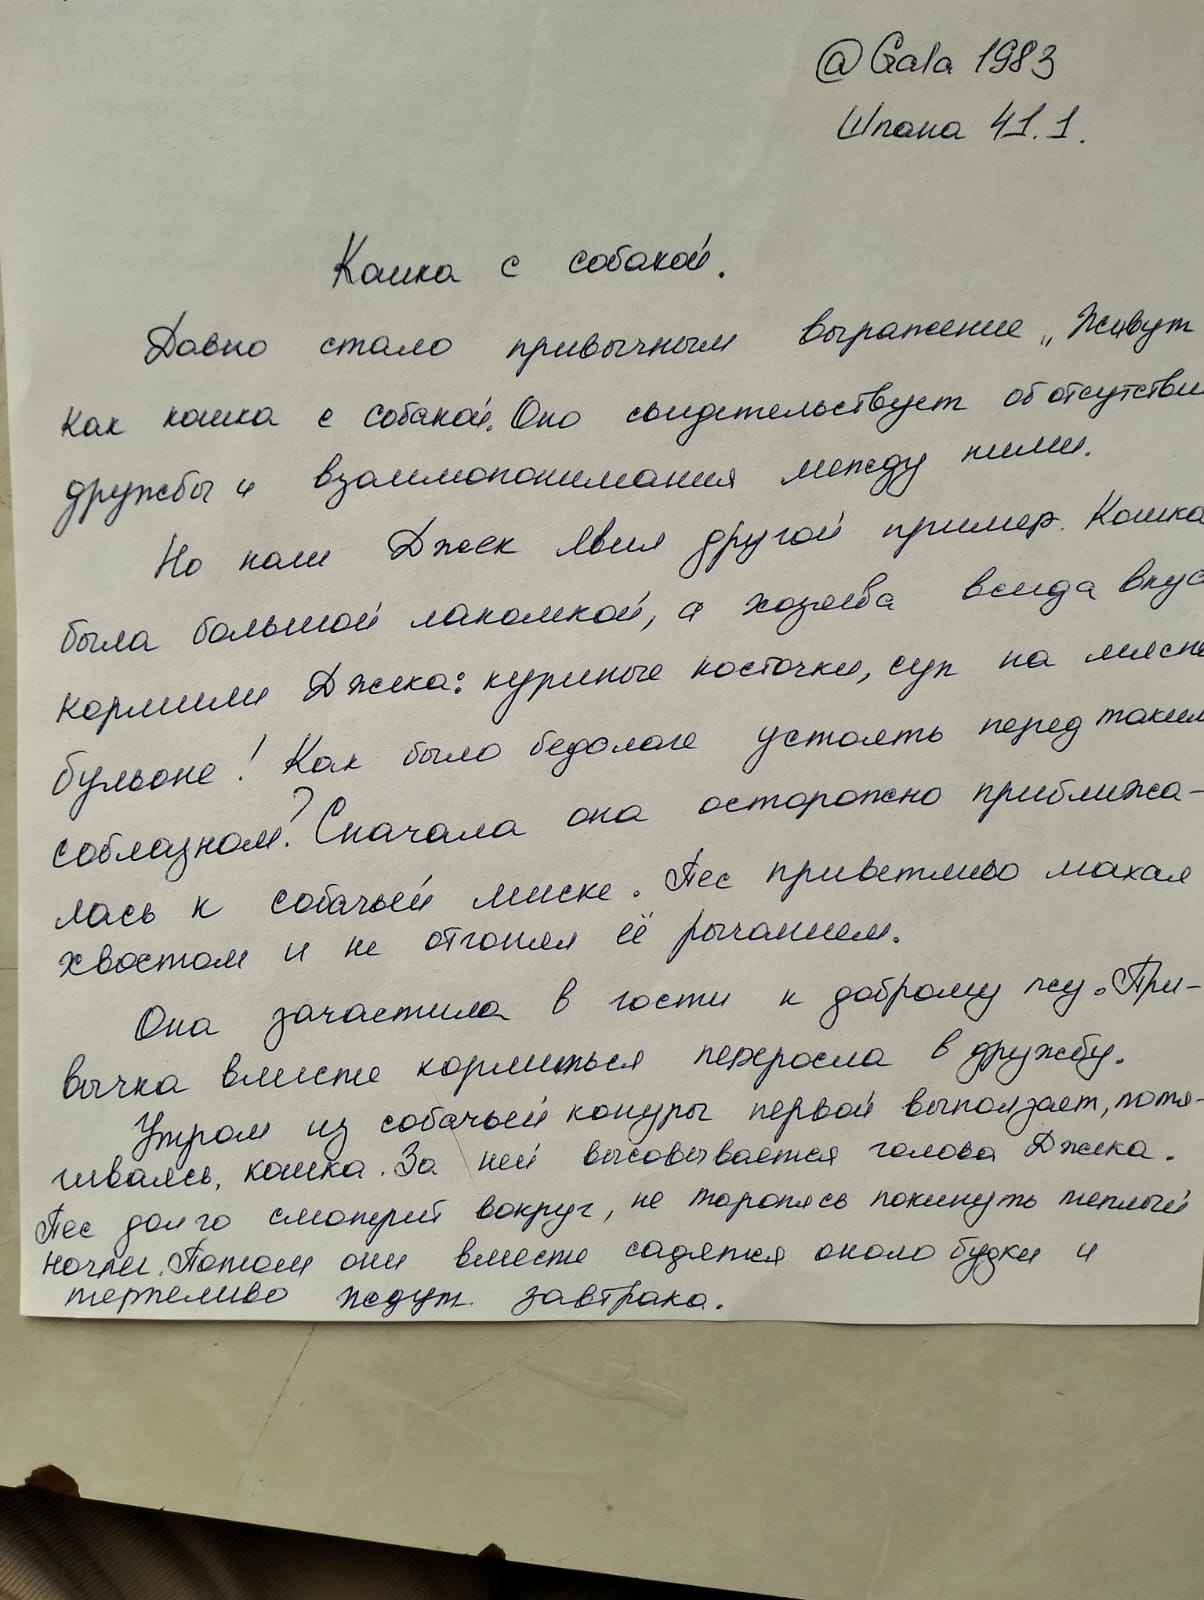 @Gala 1983
Шпана 41.1.
Кошка с собакой.
Давно стало привычным выражение „Живут
как кошка с собакой. Оно свидетельствует об отсутстви
дружбы и взаимопонимания между ними.
Но наш Джек явил другой пример. Кошка
была большой лакомкой, а хозяева всегда вкус
кормили Джека: куриные косточки, суп на мясно
бульоне! Как было бедолаге устоять перед таким
соблазном? Сначала она осторожно приближа-
лась к собачьей миске. Пес приветливо махал
хвостом и не отгонял её рычанием.
Она зачастила в гости к доброму псу. При-
вычка вместе кормиться переросла в дружбу.
Утром из собачьей конуры первой выползает, потя-
гиваясь, кошка. За ней высовывается голова Джека.
Пес долго смотрит вокруг, не торопясь покинуть теплый
ночлег. Потом они вместе садятся около будки и
терпеливо ждут завтрака.